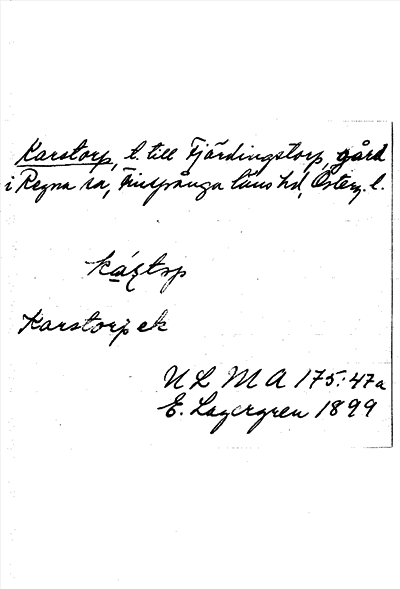 Karstorp, t. till Fjärdingstorp, gård
i Regna sn, Finspånga läns hd, Österg. l.
Karstorp ek
U L M A 175:47a
E. Lagergren 1899